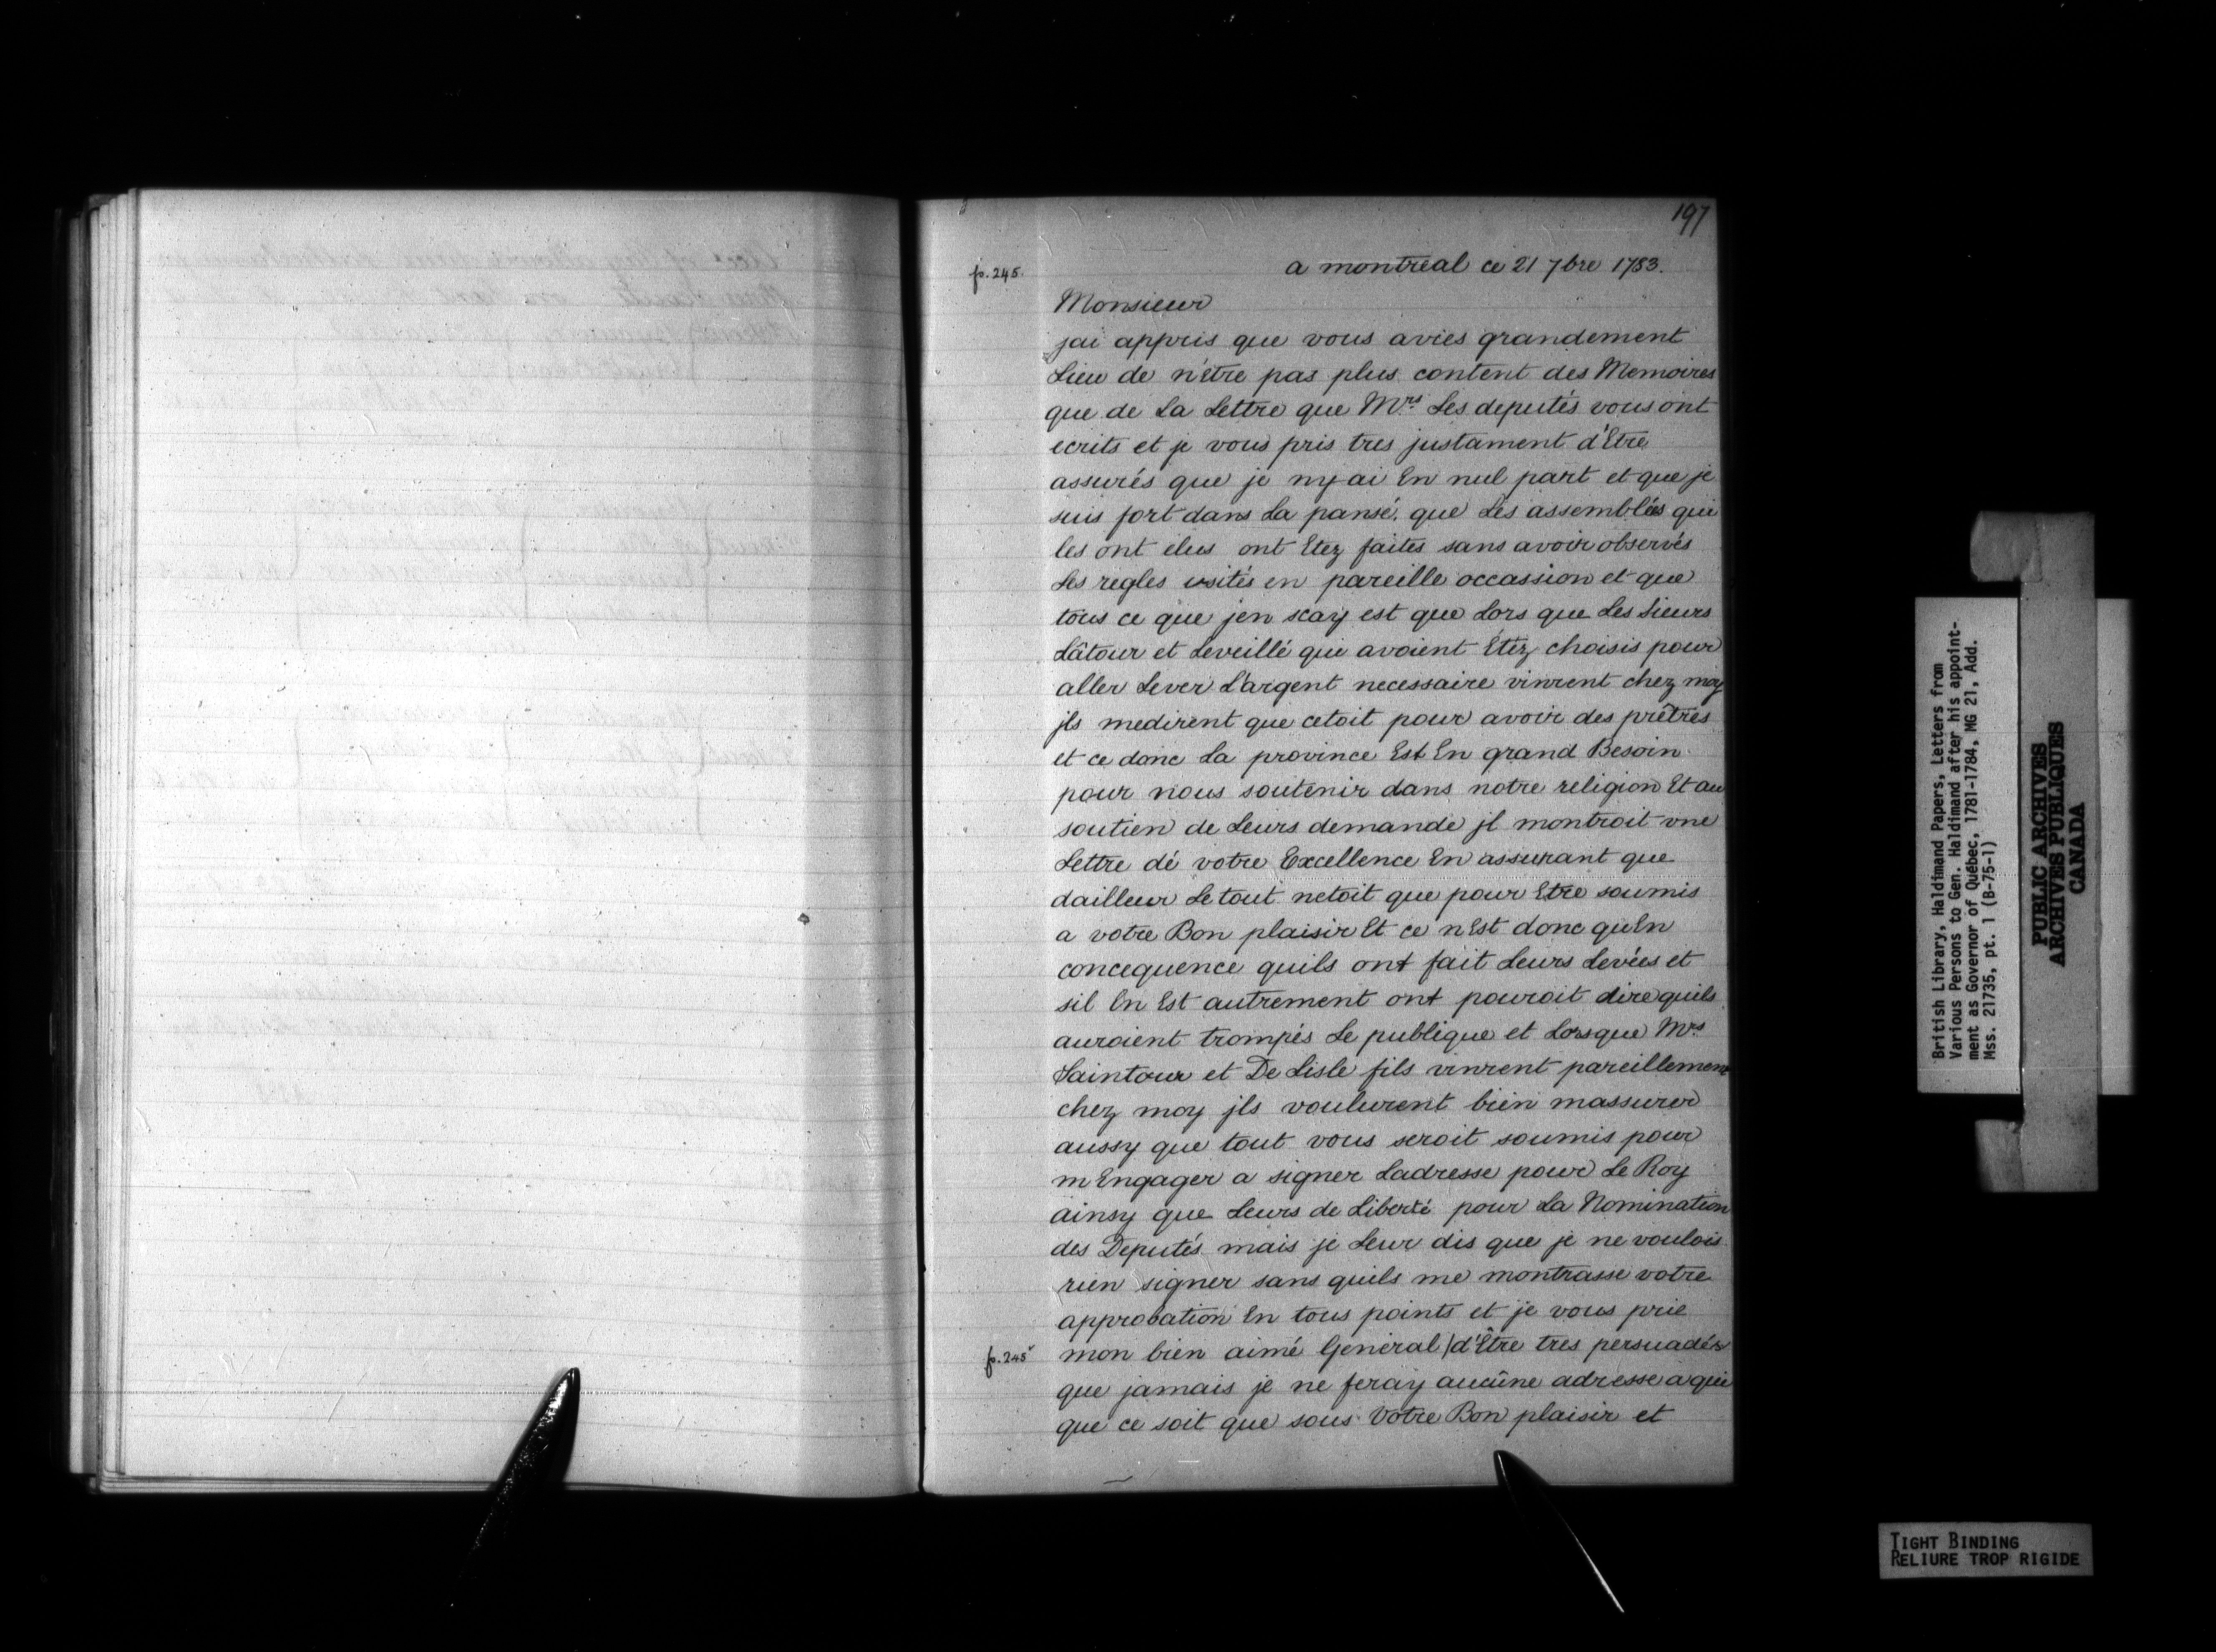 197
fo. 245.
a montreal ce 21 7bre 1783.
Monsieur
jai appris que vous avies grandement
Lieu de n'être pas plus content des Memoires
que de La Lettre que Mrs Les deputés vous ont
ecrits et je vous pris tres justament d'Etre
assurés que je ny ai En nul part et que je
suis fort dans La pansé. que Les assemblées qui
les ont elus ont Etez faites sans avoir observés
Les regles usités en pareille occassion et que
tous ce que jen scay est que Lors que Les Sieurs
Lâtour et Leveillé qui avoient Étéz choisis pour
aller Lever L'argent necessaire vinrent chez moy
jls medirent que cetoit pour avoir des prêtres
et ce donc La province Est En grand Besoin
pour nous soutenir dans notre religion Et au
soutien de Leurs demande jl montroit une
Lettre dé votre Excellence En assurant que
dailleur Le tout netoit que pour Etre soumis
a votre Bon plaisir Et ce nEst donc quEn
concequence quils ont fait Leurs Levées et
sil En Est autrement ont pouroit dire quils
auroient trompés Le publique et Lorsque Mrs
Saintour et De Lisle fils vinrent pareillement
chez moy jls voulurent bien massurer
aussy que tout vous seroit soumis pour
mEngager a signer Ladresse pour Le Roy
ainsy que Leurs de Liberté pour La Nomination
des Deputés mais je Leur dis que je ne voulois
rien signer sans quils me montrasse votre
approbation En tous points et je vous prie
fo. 245v mon bien aimé General / d'Être tres persuadés
que jamais je ne feray aucûne adresse a qui
que ce soit que sous Votre Bon plaisir et
British Library, Haldimand Papers, Letters from
Various Persons to Gen. Haldimand after his appoint-
ment as Governor of Québec, 1781-1784, MG 21, Add.
Mss. 21735, pt. 1 (B-75-1)
PUBLIC ARCHIVES
ARCHIVES PUBLIQUES
CANADA
TIGHT BINDING
RELIURE TROP RIGIDE